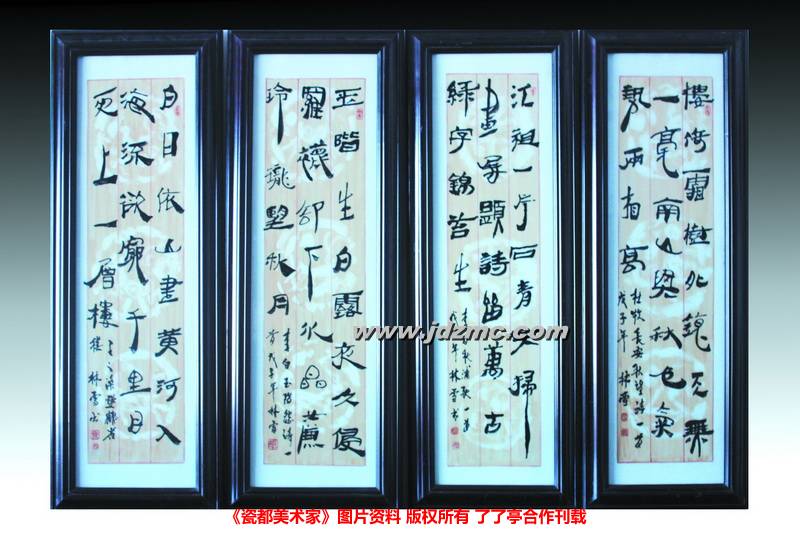 白日依山盡黃河入
海流欲窮千里目
更上一層樓
王之渙登鸛雀
樓 林雪书
玉階生白露夜久侵
羅襪卻下水晶簾
玲瓏望秋月
李白玉階怨詩一
首戊子年林雪
江祖一片石青天掃
畫屏題詩留萬古
綠字錦苔生
李白秋浦歌一首
戊子年林雪书
樓倚霜樹外鏡天無
一毫南山與秋色氣
勢兩相高
杜牧長安秋望詩一首
戊子年 林雪
www.jdzmc.com
《瓷都美术家》图片资料 版权所有 了了亭合作刊载